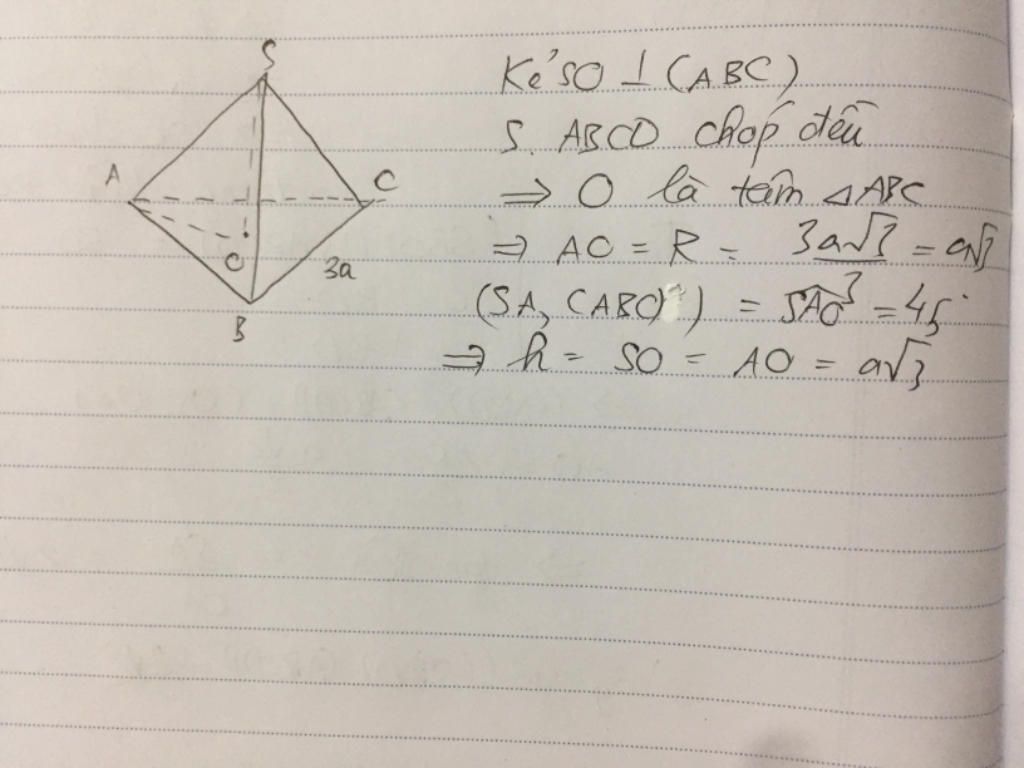 S
A
C
O
3a
B
Kẻ SO ⊥ (ABC)
S. ABCD chóp đều
⇒ O là tâm △ABC
⇒ AO = R = 3a√3/3 = a√3
(SA, (ABC)) = SAO = 45°
⇒ h = SO = AO = a√3